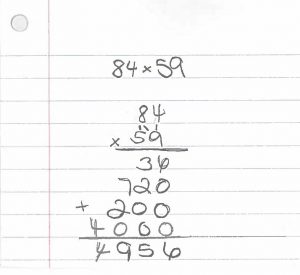 84 × 59
84
× 59
36
720
+ 200
4000
4956